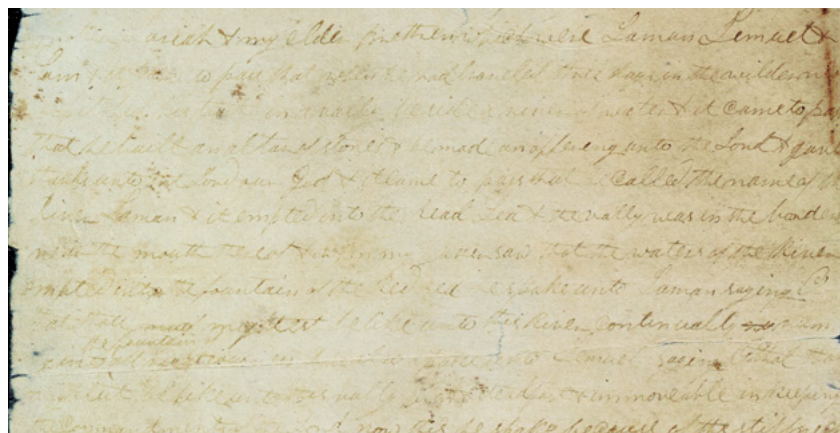 ariah & my elder Brethren which were Laman Lemuel &
Sam & it came to pass that when he had traveled three days in the wilderness
he pitched his tent in a vally beside a river of water & it came to pa
that he built an altar of stones & he made an offering unto the Lord & gave
thanks unto the Lord our God & it came to pass that he called the name of the
River Laman & it emptied into the read Sea & the vally was in the borders
near the mouth thereof & when my father saw that the waters of the River
emptied into the fountain of the he spake unto Laman saying
that thou mightest be like unto this River continually run
the fountain
of all righteousness & he also spake unto Lemuel saying O that
mightest be like unto this vally firm & steadfast & immoveable in keeping
the Commandments of the Lord now this he spake because of the stiffne